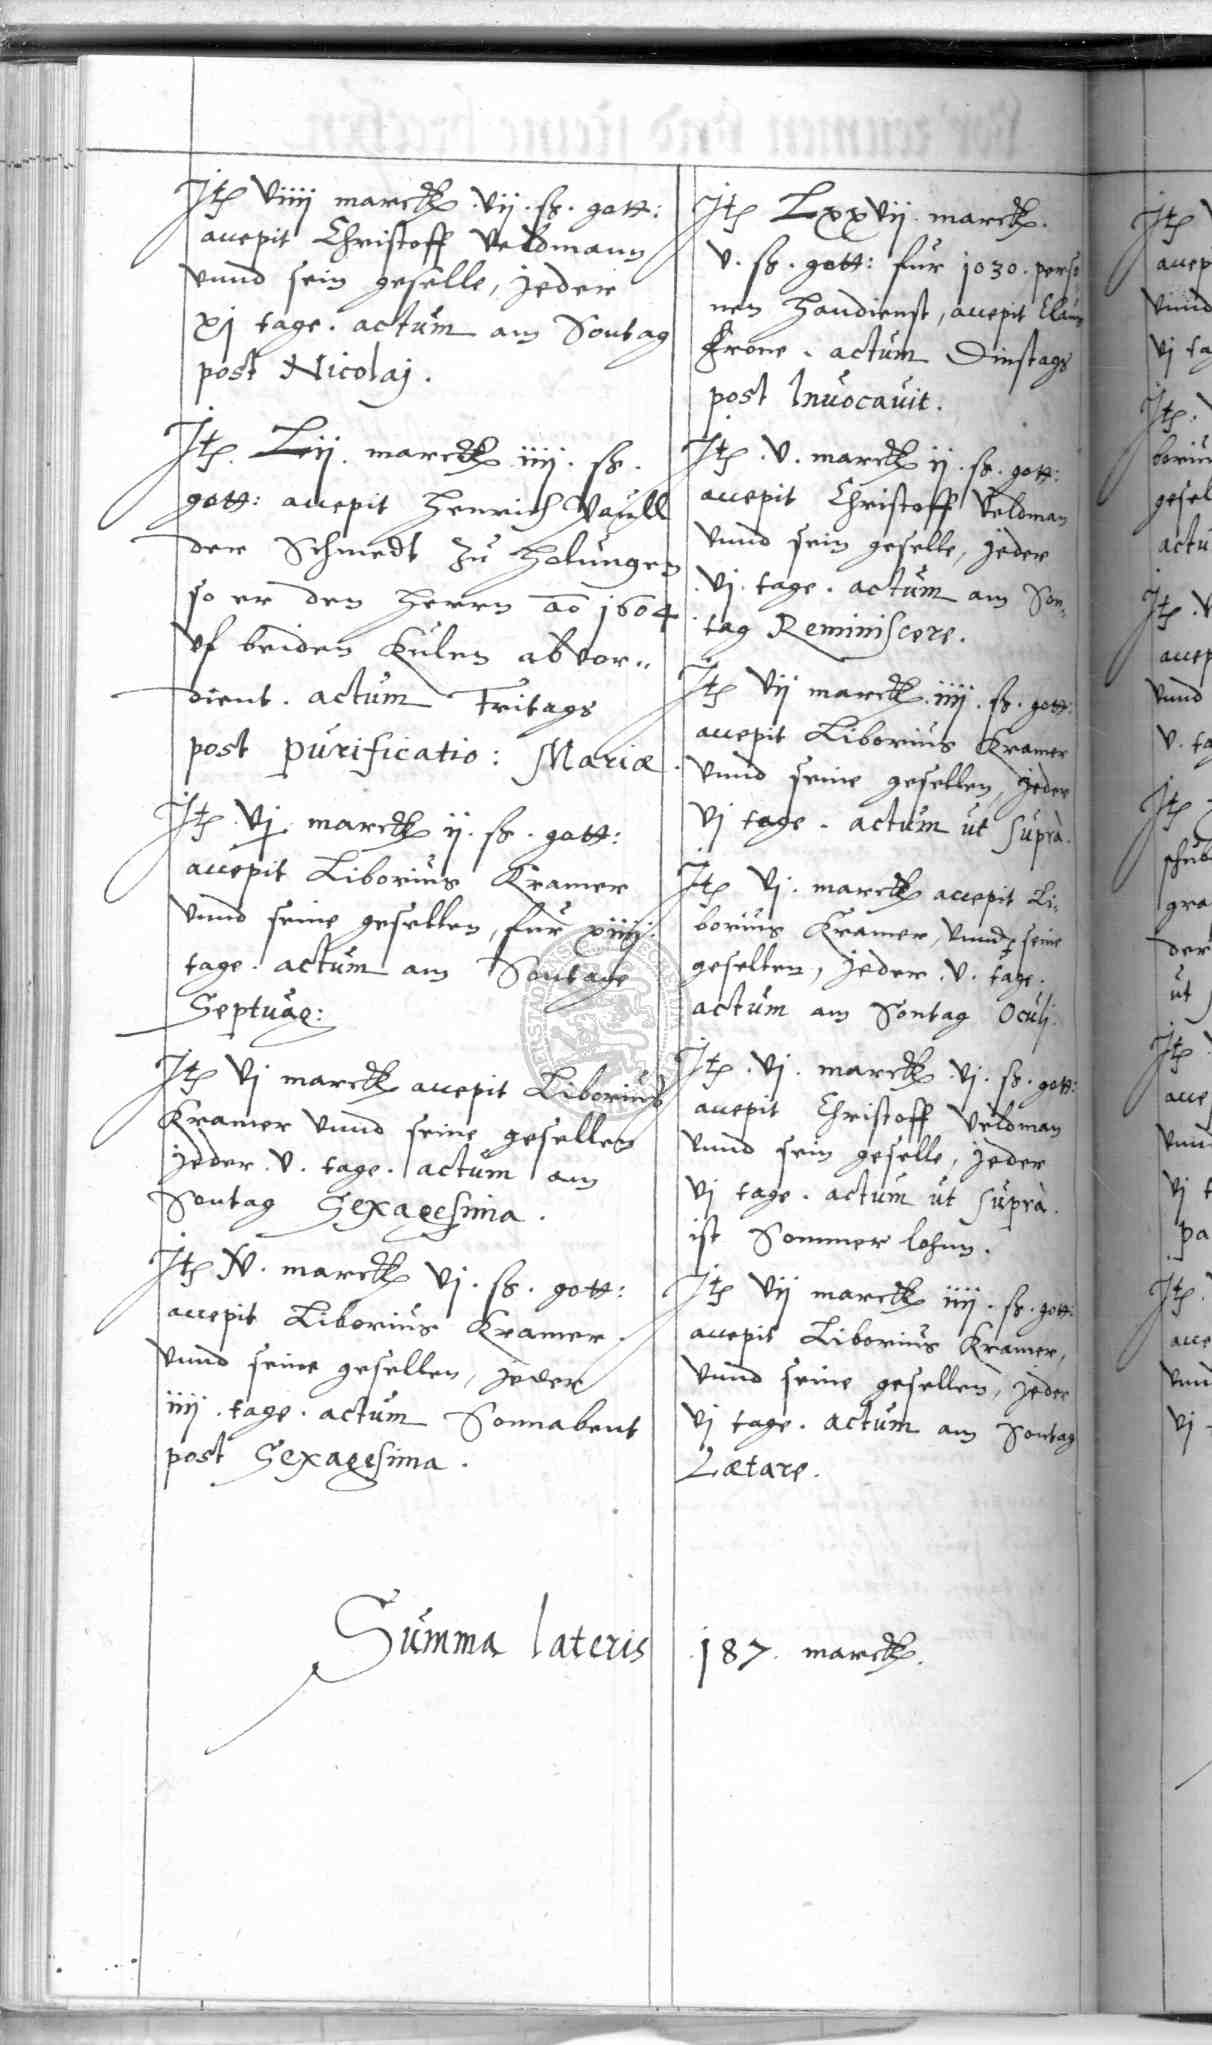 Itꝫ viiij marck vij. ß. gott:
accepit Christoff Veldmann
vnnd sein geselle, jeder
xj tage. actum am Sontag
post Nicolaj.
Itꝫ. Lij. marck iiij. ß.
gott: accepit Henrich Paull
der Schmedt zu Holungen
so er den Herrn ao 1604
vf beiden Kulen abvor„
dient. actum Fritags
post purificatio: Mariæ.
Itꝫ. vj. marck ij. ß. gott:
accepit Liborius Kramer
vnnd seine gesellen, fur xiiij.
tage. actum am Sontage
Septuag:
Itꝫ vj marck accepit Liborius
Kramer vnnd seine gesellen
jeder. v. tage. actum am
Sontag Sexagesima.
Itꝫ iv. marck vj. ß. gott:
accepit Liborius Kramer.
vnnd seine gesellen, jeder
iiij. tage. actum Sonnabent
post Sexagesima.
Summa lateris
Itꝫ Lxxvij. marck.
v. ß. gott: fur 1030. perso
nen Handienst, accepit Claus
Krone. actum Dinstags
post Invocavit.
Itꝫ. v. marck ij. ß. gott:
accepit Christoff Veldman
vnnd sein geselle, jeder
.vj. tage. actum am Son„
tag Reminiscere.
Itꝫ vij marck. iiij. ß. gott:
accepit Liborius Kramer
vnnd seine gesellen, jeder
vj tage. actum ut suprà.
Itꝫ vj. marck accepit Li„
borius Kramer, vnnd seine
gesellen, jeder. v. tage.
actum am Sontag Oculj.
Itꝫ. vj. marck vj. ß. gott:
accepit Christoff Veldman
vnnd sein geselle, jeder
vj tage. actum ut suprà.
ist Sommer lohnn.
Itꝫ vij marck iiij. ß. gott:
accepit Liborius Kramer,
vnnd seine gesellen, jeder
vj tage. actum am Sontag
Lætare.
187. marck.